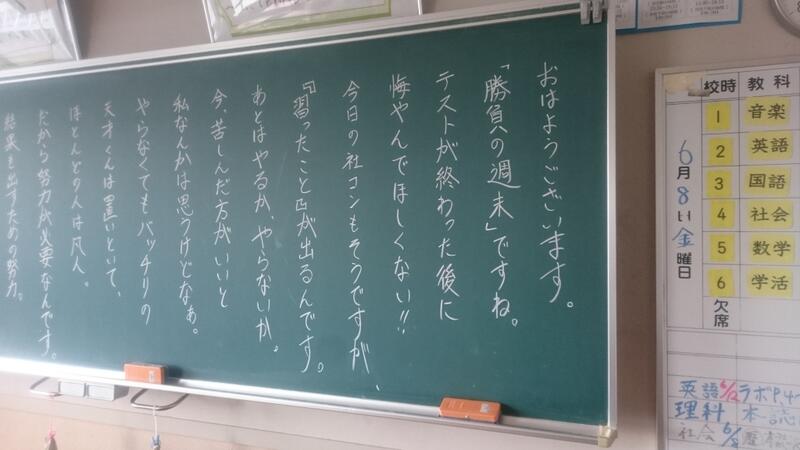 おはようございます。
「勝負の週末」ですね。
テストが終わった後に
悔やんでほしくない!!
今日の社コンもそうですが、
『習ったこと』が出るんです。
あとはやるか、やらないか。
今、苦しんだ方がいいと
私なんかは思うけどなぁ。
やらなくてもバッチリの
天才くんは置いといて、
ほとんどの人は凡人。
だから努力が必要なんです。
結果を出すための努力。
校時 教科
1 音楽
2 英語
3 国語
4 社会
5 数学
6 学活
欠席
6月8日金曜日
英語 6/12 ラボP4
理科 本誌
社会 6/8